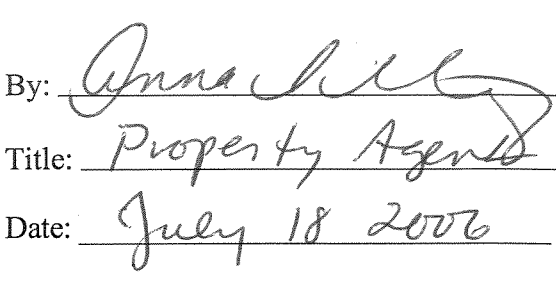 By: Anna
Title: Property Agent
Date: July 18 2006